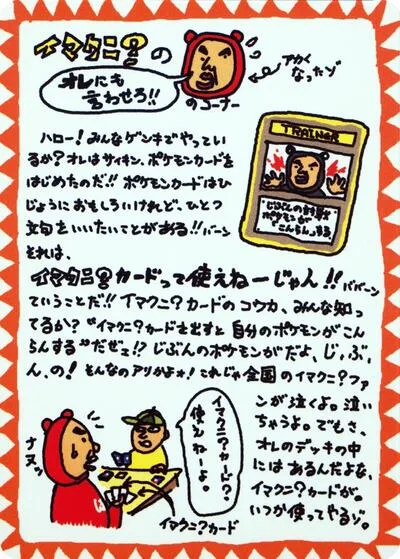 イマクニ?の
オレにも
言わせろ!!
のコーナー
アカく
なったゾ
ハロー!みんなゲンキでやってい
るか?オレはサイキン、ポケモンカードを
はじめたのだ!!ポケモンカードはひ
じょうにおもしろいけれど、ひとつ
文句をいいたいことがある!!バーン
それは、
TRAINER
じぶんの
ポケモンが
「こんらん」する
イマクニ?カードって使えねーじゃん!!ババーン
ていうことだ!!イマクニ?カードのコウカ、みんな知っ
てるか?“イマクニ?カードを出すと自分のポケモンがこん
らんする”だぜェ!?じぶんのポケモンがだよ、じ、ぶ、
ん、の!そんなのアリかよォ!これじゃ全国のイマクニ?ファ
ンが泣くよ。泣い
ちゃうよ。でもさ、
オレのデッキの中
にはあるんだよな、
イマクニ?カードが。
いつか使ってやるゾ。
イマクニ?カード?
使えねーよ。
ナヌッ
イマクニ?カード